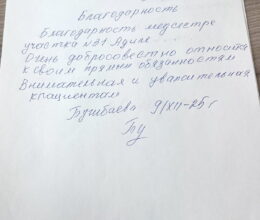 Благодарность
Благодарность медсестре
участка №31 Адине...
Очень добросовестно относится
к своим прямым обязанностям
Внимательная и уважительная
к пациентам
9/XII-25 г